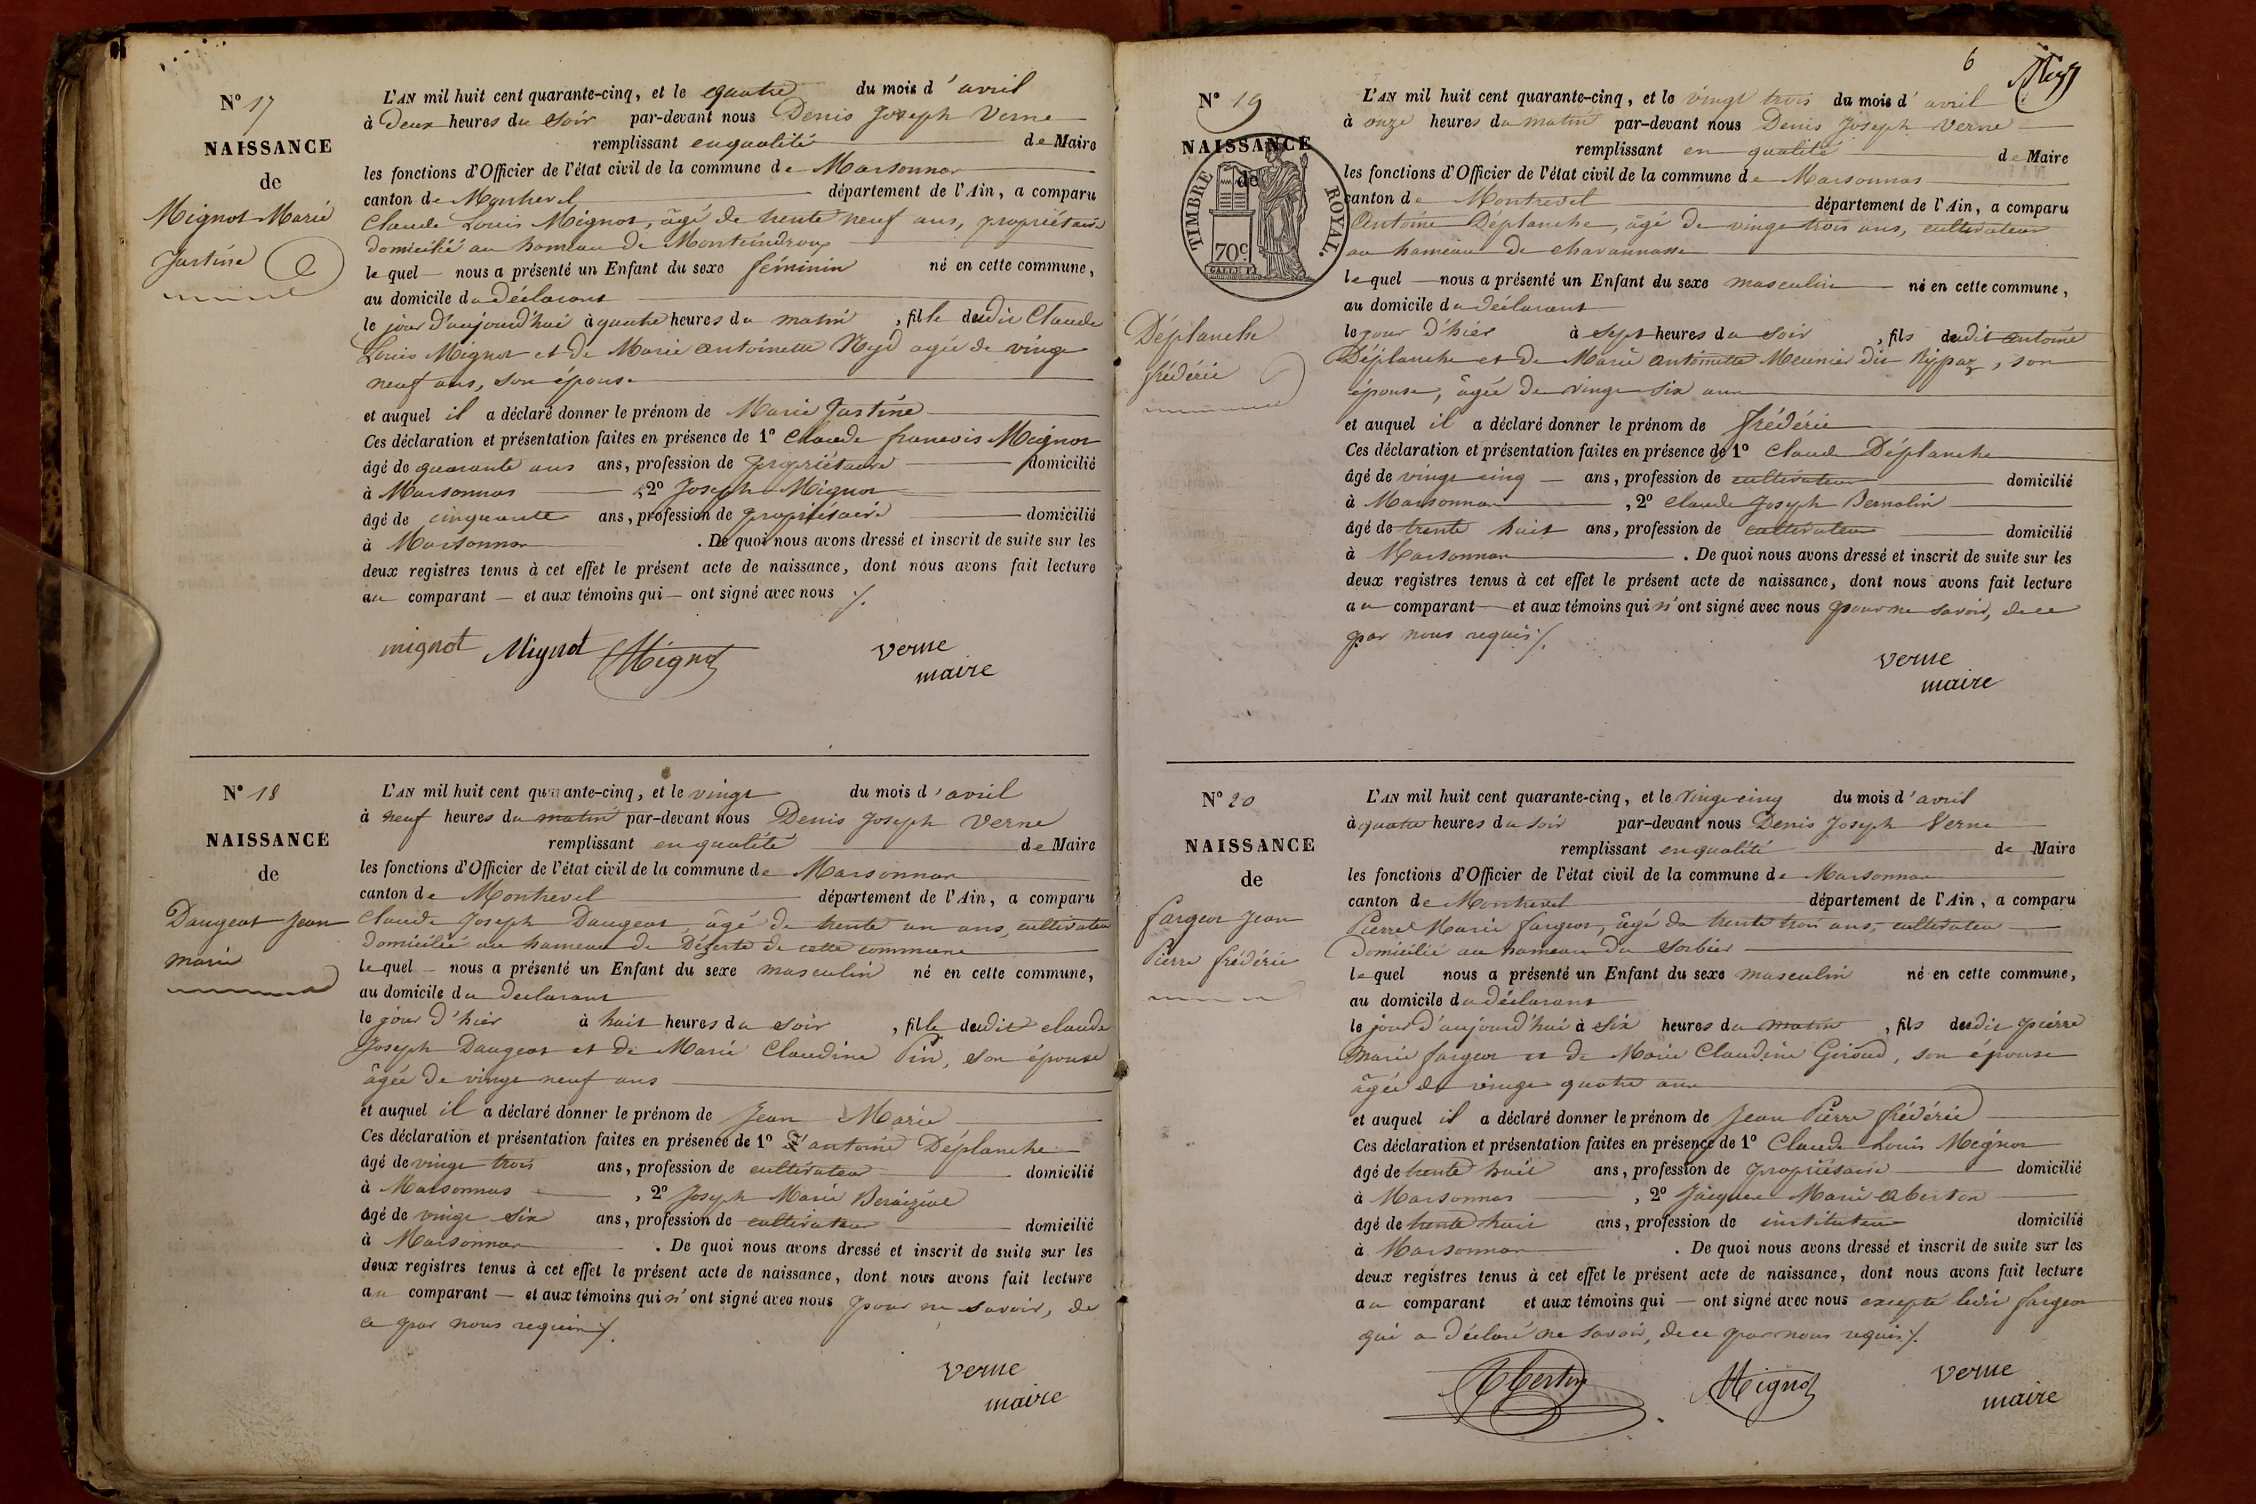 N° 17
NAISSANCE
de
Mignot Marie
Justine
L'AN mil huit cent quarante-cinq, et le quatre du mois d'avril
à deux heures du soir par-devant nous Denis Joseph Verne
remplissant en qualité de Maire
les fonctions d'Officier de l'état civil de la commune de Marsonnas
canton de Montrevel département de l'Ain, a comparu
Claude Louis Mignot, âgé de trente neuf ans, propriétaire
domicilié au hameau de
le quel nous a présenté un Enfant du sexe féminin né en cette commune,
au domicile du déclarant
le jour d'aujourd'hui à quatre heures du matin, fille dudit Claude
Louis Mignot et de Marie antoinette agée de vingt
neuf ans, son épouse
et auquel il a déclaré donner le prénom de Marie Justine
Ces déclaration et présentation faites en présence de 1° Claude francois Mignot
âgé de quarante ans ans, profession de propriétaire domicilié
à Marsonnas, 2° Joseph Mignot
âgé de cinquante ans, profession de propriétaire domicilié
à Marsonnas. De quoi nous avons dressé et inscrit de suite sur les
deux registres tenus à cet effet le présent acte de naissance, dont nous avons fait lecture
au comparant et aux témoins qui ont signé avec nous ./.
mignot Mignot Mignot verne
maire
N° 18
NAISSANCE
de
Daugeat Jean
marie
L'AN mil huit cent quarante-cinq, et le vingt du mois d'avril
à neuf heures du matin par-devant nous Denis Joseph Verne
remplissant en qualité de Maire
les fonctions d'Officier de l'état civil de la commune de Marsonnas
canton de Montrevel département de l'Ain, a comparu
Claude Joseph Daugeat, âgé de trente un ans, cultivateur
domicilié au hameau de Déserte de cette commune
le quel nous a présenté un Enfant du sexe masculin né en cette commune,
au domicile du declarant
le jour d'hier à huit heures du soir, fils dudit claude
Joseph Daugeat et de Marie Claudine Pin, son épouse
âgée de vingt neuf ans
et auquel il a déclaré donner le prénom de Jean Marie
Ces déclaration et présentation faites en présence de 1° antoine Déplanche
âgé de vingt trois ans, profession de cultivateur domicilié
à Marsonnas, 2° Joseph Marie
âgé de vingt six ans, profession de cultivateur domicilié
à Marsonnas. De quoi nous avons dressé et inscrit de suite sur les
deux registres tenus à cet effet le présent acte de naissance, dont nous avons fait lecture
au comparant et aux témoins qui n'ont signé avec nous pour ne savoir, de
ce par nous requis ./.
verne
maire
6
N° 19
NAISSANCE
de
TIMBRE ROYAL.
70c
Déplanche
frédéric
L'AN mil huit cent quarante-cinq, et le vingt trois du mois d'avril
à onze heures du matin par-devant nous Denis Joseph Verne
remplissant en qualité de Maire
les fonctions d'Officier de l'état civil de la commune de Marsonnas
canton de Montrevel département de l'Ain, a comparu
Antoine Déplanche, âgé de vingt trois ans, cultivateur
au hameau de chavannasse
le quel nous a présenté un Enfant du sexe masculin né en cette commune,
au domicile du déclarant
le jour d'hier à sept heures du soir, fils dudit antoine
Déplanche et de Marie antoinette Meunier dit, son
épouse, âgée de vingt six ans
et auquel il a déclaré donner le prénom de frédéric
Ces déclaration et présentation faites en présence de 1° Claude Déplanche
âgé de vingt cinq ans, profession de cultivateur domicilié
à Marsonnas, 2° Claude Joseph
âgé de trente huit ans, profession de cultivateur domicilié
à Marsonnas. De quoi nous avons dressé et inscrit de suite sur les
deux registres tenus à cet effet le présent acte de naissance, dont nous avons fait lecture
au comparant et aux témoins qui n'ont signé avec nous pour ne savoir, de ce
par nous requis ./.
verne
maire
N° 20
NAISSANCE
de
fargeot Jean
Pierre frédéric
L'AN mil huit cent quarante-cinq, et le vingt cinq du mois d'avril
à quatre heures du soir par-devant nous Denis Joseph Verne
remplissant en qualité de Maire
les fonctions d'Officier de l'état civil de la commune de Marsonnas
canton de Montrevel département de l'Ain, a comparu
Pierre Marie fargeot, âgé de trente trois ans, cultivateur
domicilié au hameau du Sorbier
le quel nous a présenté un Enfant du sexe masculin né en cette commune,
au domicile du déclarant
le jour d'aujourd'hui à six heures du matin, fils dudit pierre
marie fargeot et de Marie Claudine Giroud, son épouse
âgée de vingt quatre ans
et auquel il a déclaré donner le prénom de Jean Pierre frédéric
Ces déclaration et présentation faites en présence de 1° Claude Louis Mignot
âgé de trente huit ans, profession de propriétaire domicilié
à Marsonnas, 2° Jacques Marie Aberton
âgé de trente huit ans, profession de instituteur domicilié
à Marsonnas. De quoi nous avons dressé et inscrit de suite sur les
deux registres tenus à cet effet le présent acte de naissance, dont nous avons fait lecture
au comparant et aux témoins qui ont signé avec nous excepté ledit fargeot
qui a déclaré ne savoir, de ce par nous requis ./.
Mignot verne
maire